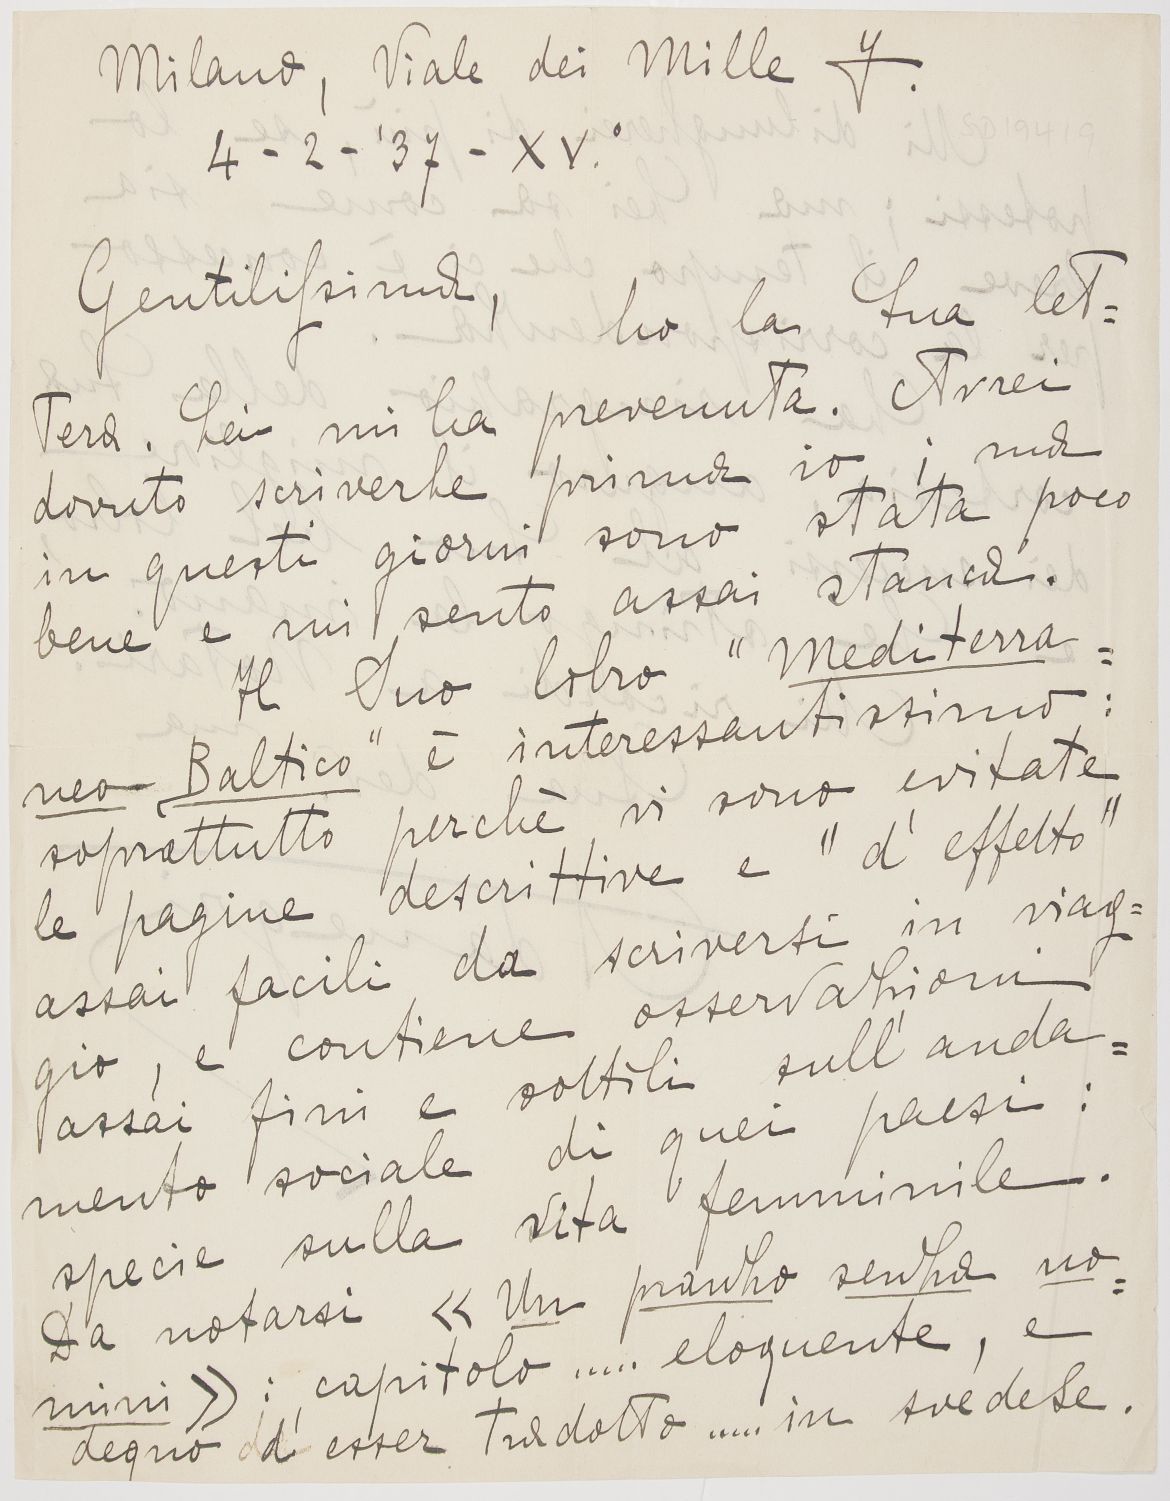 Milano, Viale dei Mille 7.
4-2-'37-XV.°
Gentilissima,
ho la Sua let=
tera. Lei mi ha prevenuta. Avrei
dovuto scriverLe prima io; ma
in questi giorni sono stata poco
bene e mi sento assai stanca.
Il Suo libro "Mediterra=
neo-Baltico" è interessantissimo:
soprattutto perchè vi sono evitate
le pagine descrittive e "d'effetto"
assai facili da scriversi in viag=
gio, e contiene osservazioni
assai fini e sottili sull'anda=
mento sociale di quei paesi:
specie sulla vita femminile.
Da notarsi «Un pranzo senza uo=
mini»: capitolo ..... eloquente, e
degno d'esser tradotto ..... in svedese.